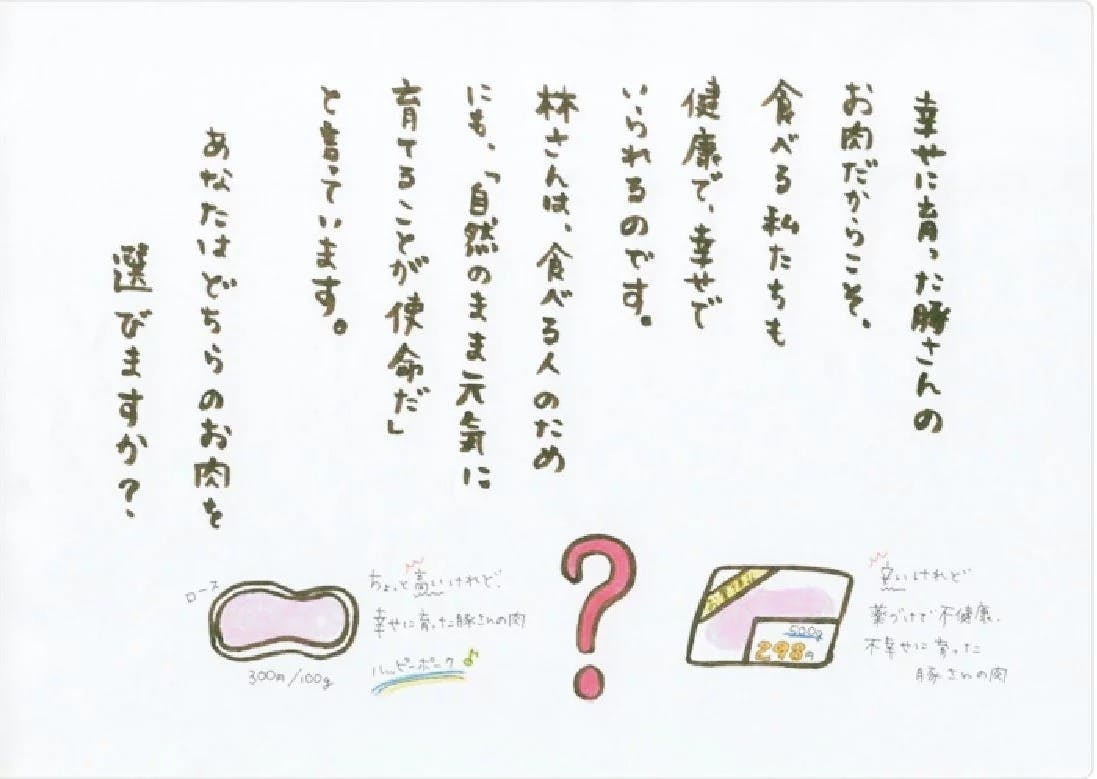 幸せに育った豚さんの
お肉だからこそ、
食べる私たちも
健康で、幸せで
いられるのです。
林さんは、食べる人のため
にも、「自然のまま元気に
育てることが使命だ」
と言っています。
あなたはどちらのお肉を
選びますか？
ロース
300円/100g
ちょっと高いけれど、
幸せに育った豚さんの肉
ハッピーポーク♪
?
500g
298円
いけれど
薬づけで不健康、
不幸せに育った
豚さんの肉